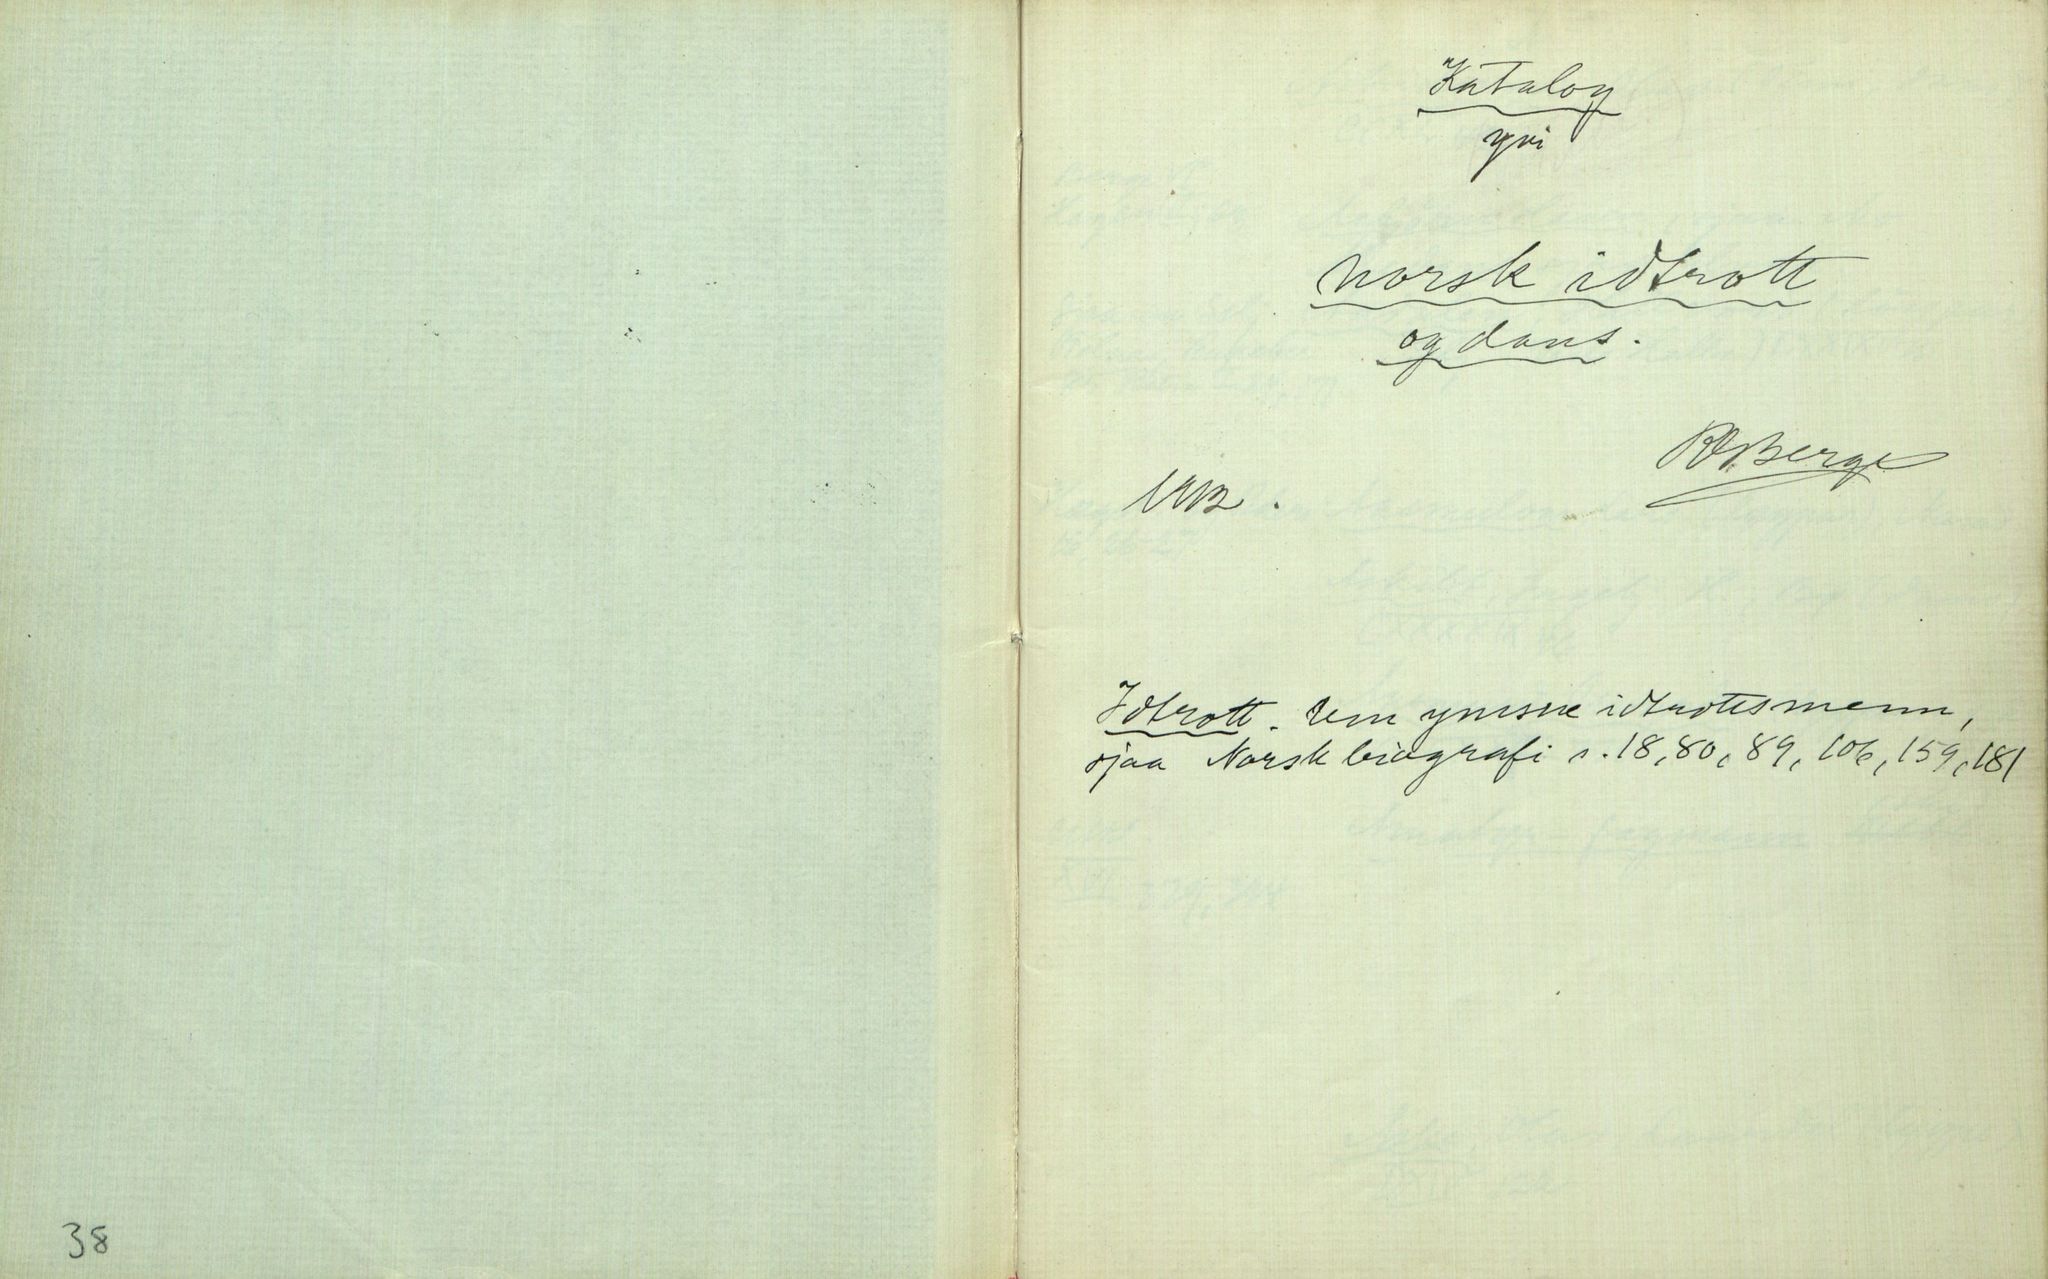 38
Katalog
yvi
norsk idtrott
og dans.
RBerge
1912.
Idtrott. Um ymsne idtrottsmenn,
sjaa Norsk biografi s. 18, 80, 89, 106, 159, 181